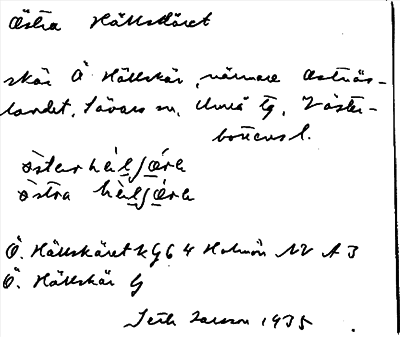 Östra Hällskäret
skär Ö Hällskär, närmare Östnäs-
landet, Sävars sn, Umeå tg, Väster-
bottens l.
östər hä̀lʃǽrə
östra hä̀lʃǽrə
Ö. Hällskäret kg 64 Holmön NV A3
Ö. Hällskär G
Seth Larsson 1935